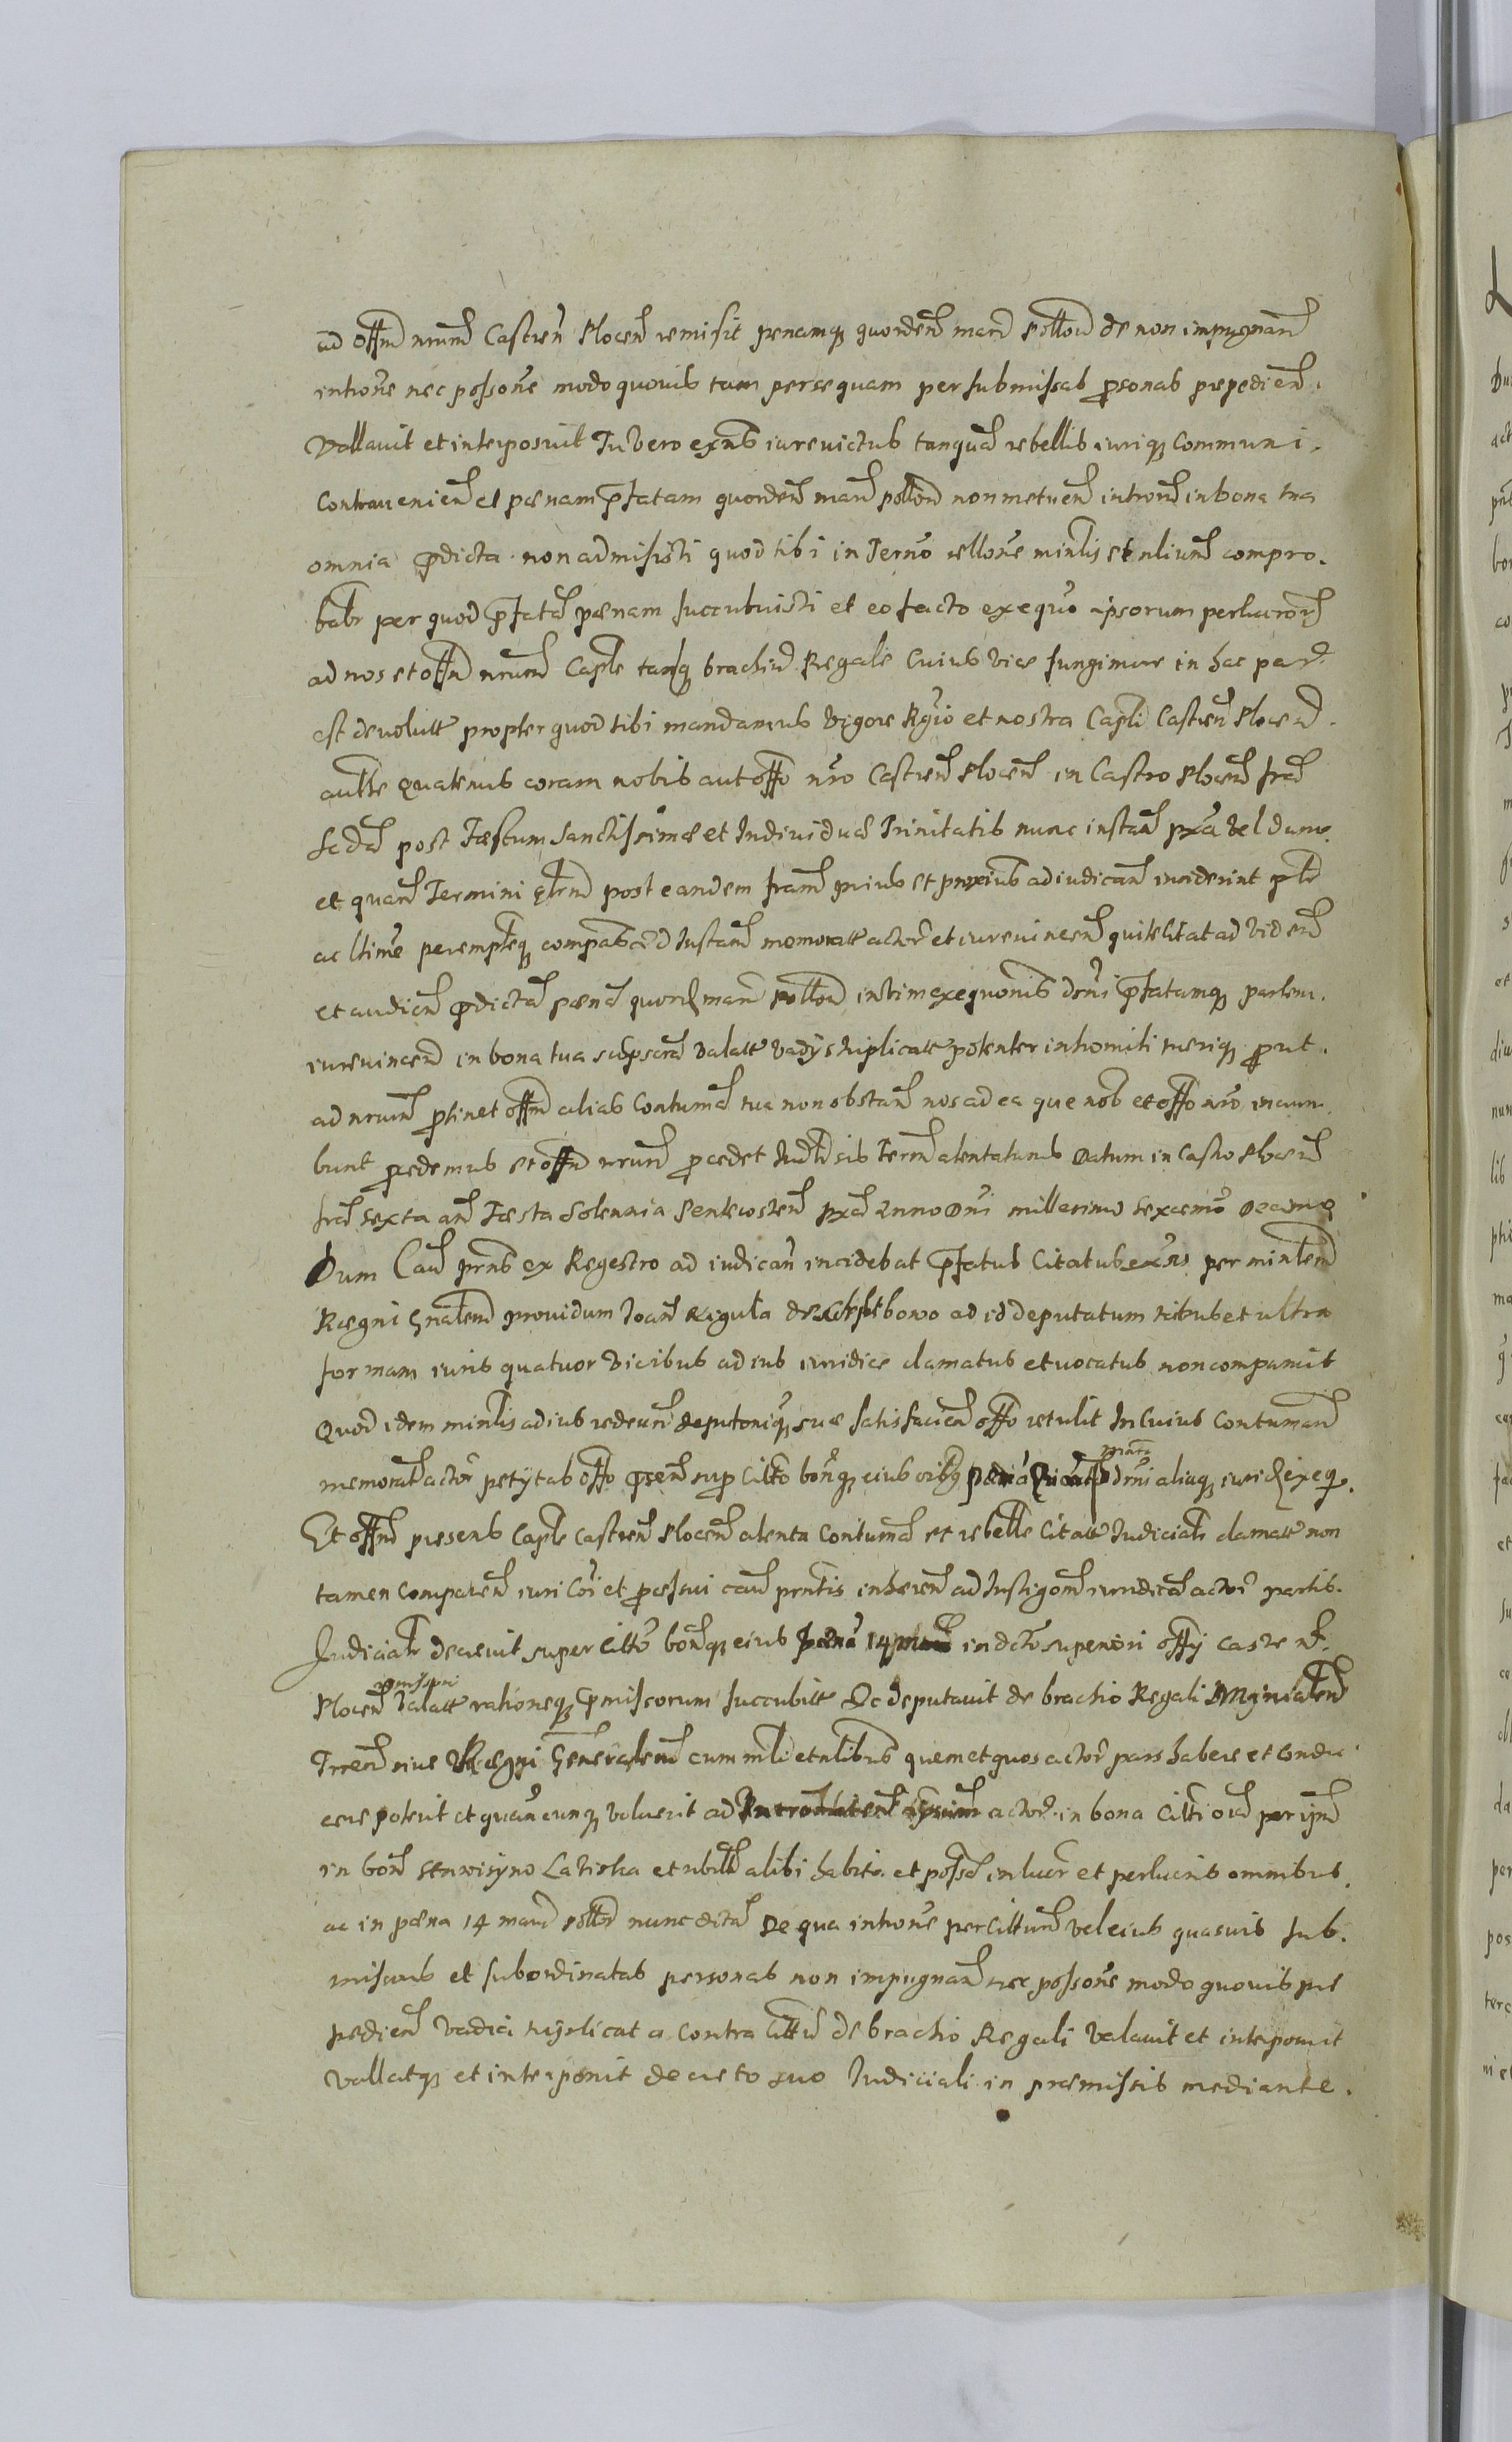 ad offm nrum Castren Plocen remisit penamq quorden marc pollon de non impugnan
introne nec possone modo quovis tam per se quam per submissas psonas prepedien.
Vallavit et interposuit Tu vero exns iurevictus tanqua rebellis iuriq communi.
Contravenien et pœnam pfatam quorden marc pollon non metuen intron in bona tua
omnia pdicta non admisisti quod tibi in Termo rellone minlis et nlium compro.
babr per quod pfata pœnam succubuisti et eo facto exequo ipsorum perlucror
ad nos et offm nrum Caple tanq brachiu Regale Cuius vice fungimur in hac par
est devolutt propter quod tibi mandamus vigore Rgio et nostra Capli Castren Plocen
autte Quatenus coram nobis aut offo nro Castren Plocen in Castro Plocen fra
scda post Festum Sanctissimæ et Individuæ Trinitatis nunc instan pxa vel dum
et quan Termini post eandem fram prius et proxius ad iudican inciderint
ac ltime perempteq compas Ad Instan memoratt actor et iurevincen qui te citat ad viden
et audien pdicta pœna quord marc pollon intim exequonis dni pfatamq partem.
iurevincen in bona tua supscra valatt vadys triplicatt potenter intromitti tueriq prut.
ad nrum ptinet offm alias Contuma tua non obstan nos ad ea que nob et offo nro incum
bunt pcedemus et offm nrum pcedet Judr sis Term atentaturus Datum in Castro Plocen
fra sexta an Festa Solennia Pentecosten pxa Anno Dni millesimo sexcemo decimo
Dum Cau prns ex Regestro ad iudican incidebat pfatus Citatus exns per minlem
Regni Gnalem providum Joan Rigula de ad id deputatum ritus et ultra
formam iuris quatuor vicibus ad ius iuridice clamatus et vocatus non comparuit
Quod idem minlis ad ius redeun deputoniq suæ satisfacien offo retulit In Cuius Contuman
memorat actor petÿtab offo psen sup citto bonq eius oibq marc dmi aliaq iurid exeq.
Et offm presens Caple Castren Plocen atenta Contuma et rebelle Citatt Judicialr clamatt non
tamen Comparen iuri Coi et pcessui cau prntis inheren ad Instigom iuridica actor partis.
Judicialr decrevit super citto bonq eius pœna 14 marc in dcto superiori offÿ castren
Plocen præmissori valatt rationeq pmissorum succubitt Ac deputavit de brachio Regali Minialem
Trren sive Regni Generalem cum mli et nlibus quem et quos actor pars habere et condu
cere poterit et quancunq voluerit ad Intromiten ipsum actor in bona citti oia per ipm
in bon et ubilt alibi habita et possa inlucr et perlucris omnibus.
ac in pœna 14 marc pollon nunc dicta De qua introne per cittum vel eius quasvis sub.
missas et subordinatas personas non impugnan nec possone modo quovis pre
pedien vadia triplicata contra citt de brachio Regali valavit et interposuit
vallatq et interponit decreto suo Judiciali in præmissis mediante.